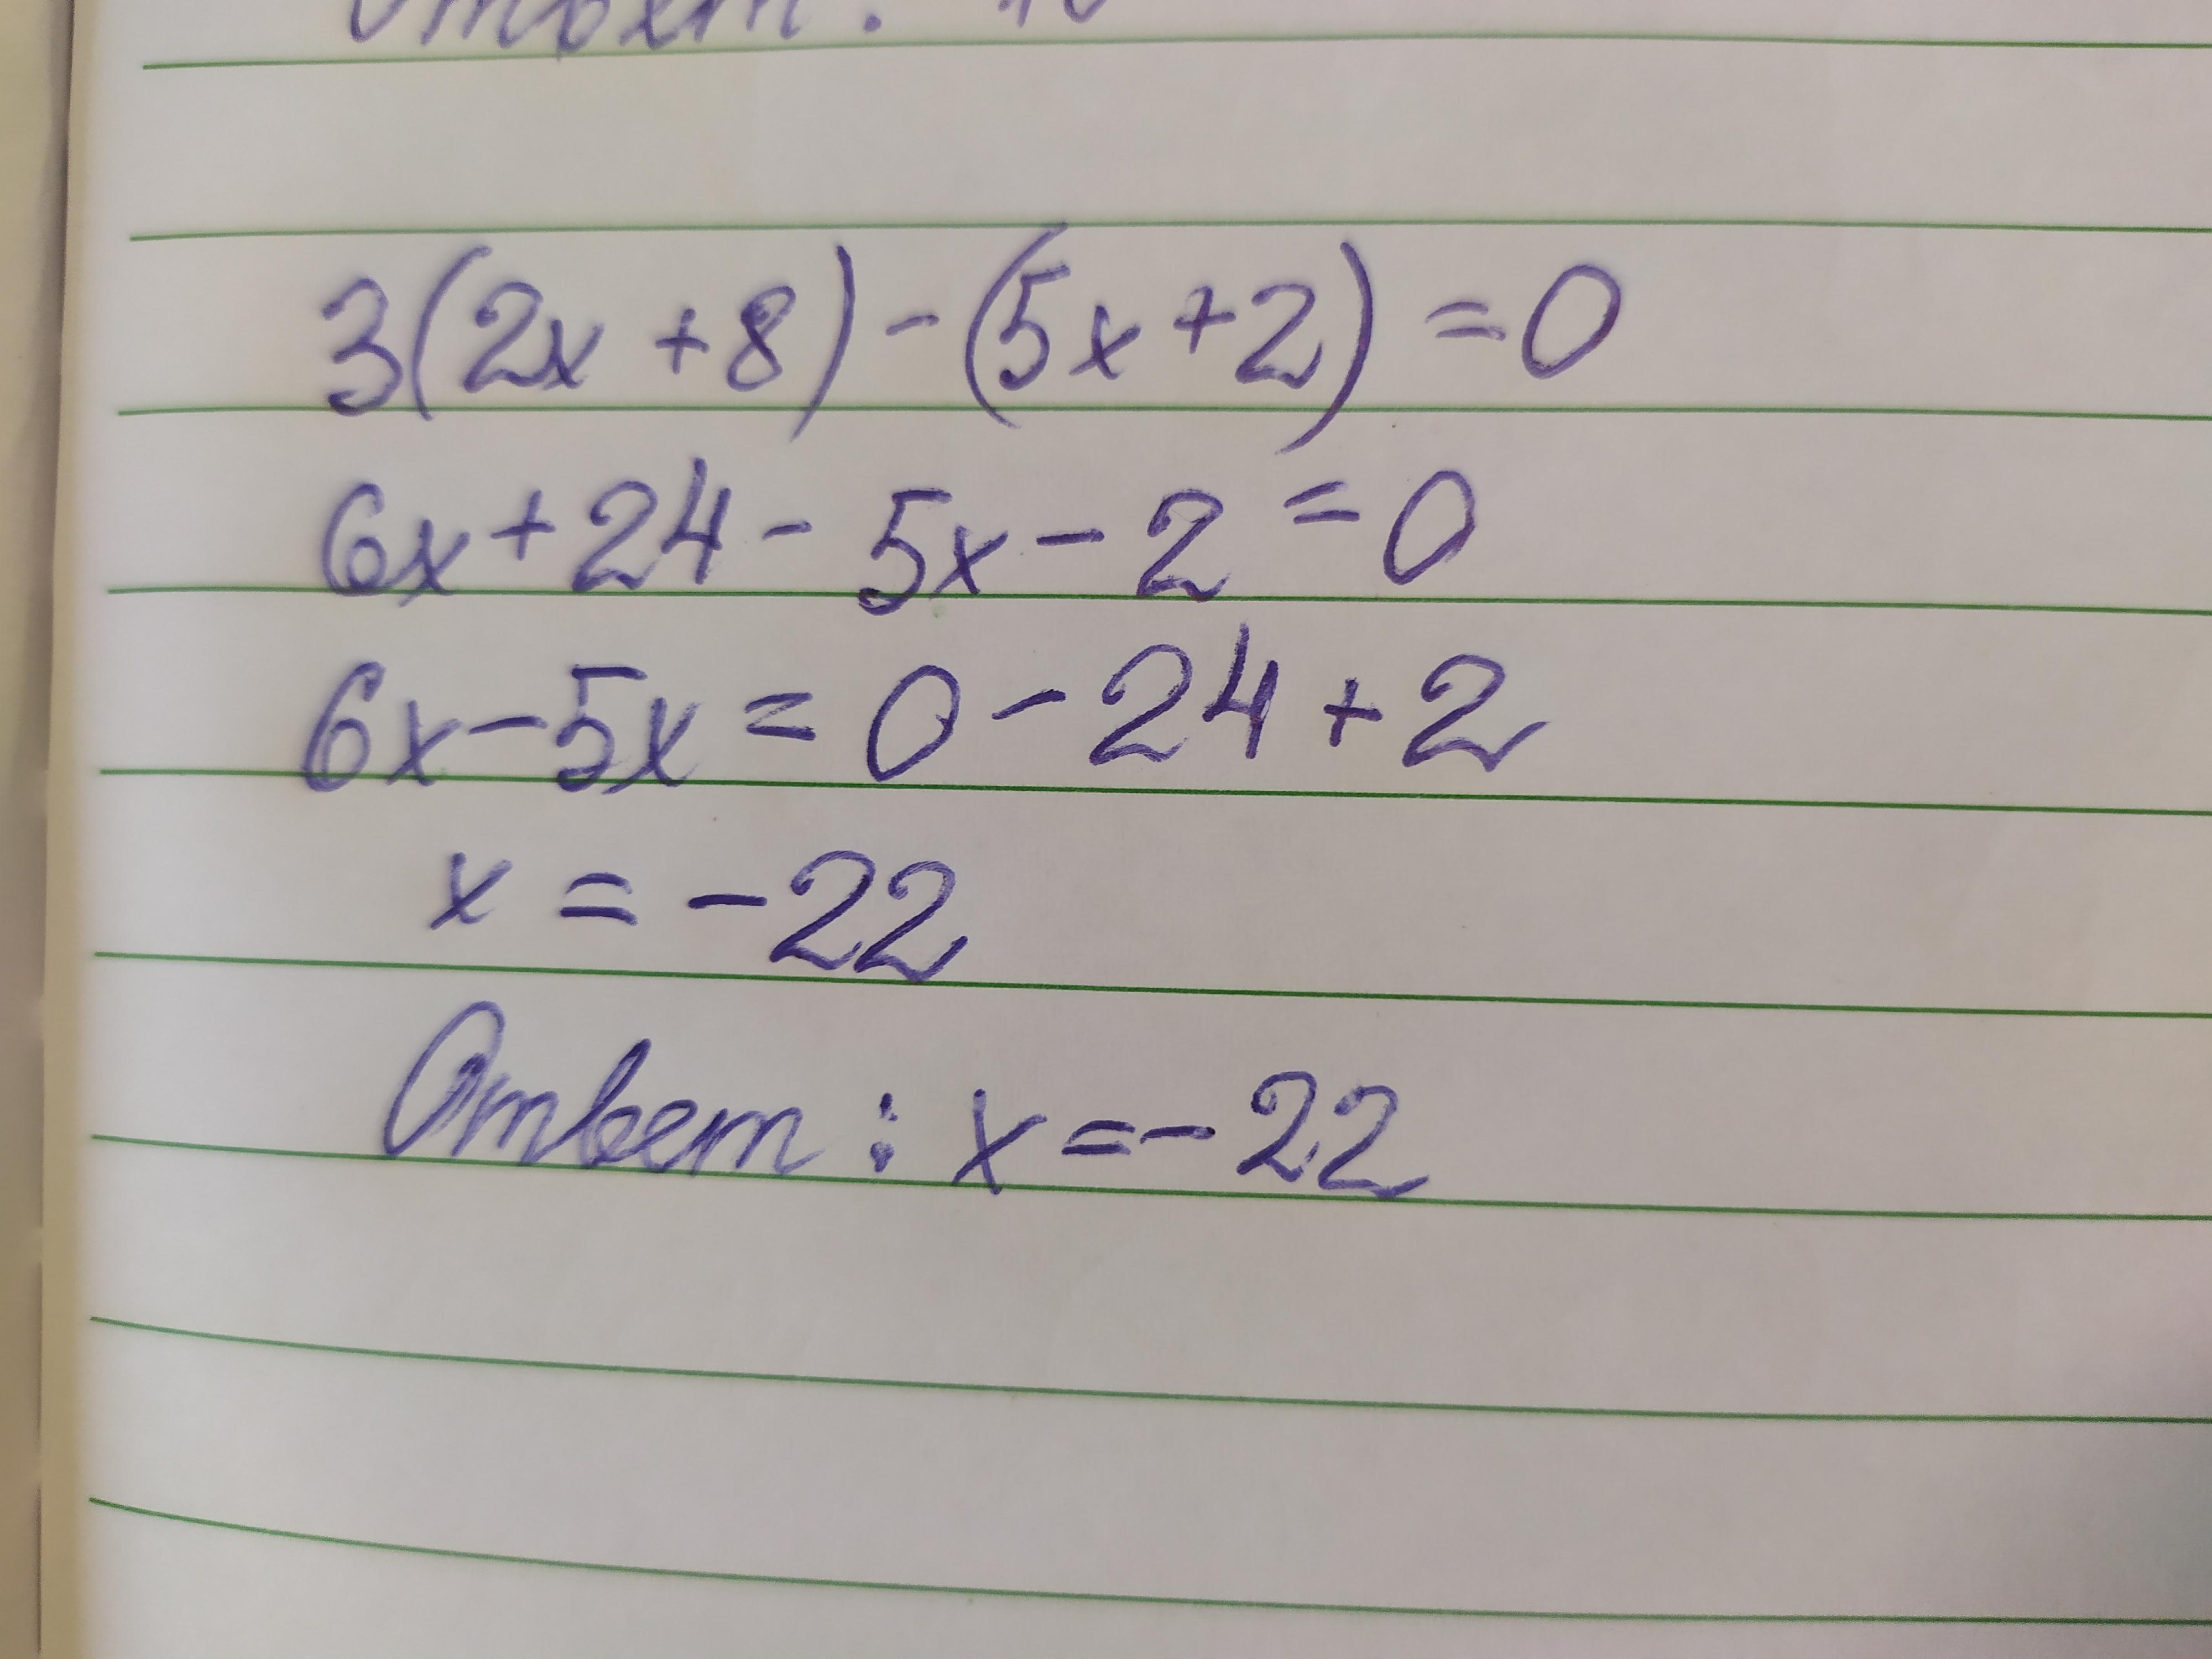 Ответ:
3(2x+8)-(5x+2)=0
6x+24-5x-2=0
6x-5x=0-24+2
x=-22
Ответ: x=-22